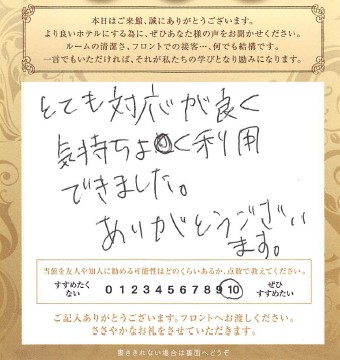 本日はご来館、誠にありがとうございます。
より良いホテルにする為に、ぜひあなた様の声をお聞かせください。
ルームの清潔さ、フロントでの接客…、何でも結構です。
一言でもいただければ、それが私たちの学びとなり励みになります。
とても対応が良く
気持ちよく利用
できました。
ありがとうござい
ます。
当館を友人や知人に勧める可能性はどのくらいあるか、点数で教えてください。
すすめたく
ない
0 1 2 3 4 5 6 7 8 9 10
ぜひ
すすめたい
ご記入ありがとうございます。フロントへお渡しください。
ささやかなお礼をさせていただきます。
書ききれない場合は裏面へどうぞ